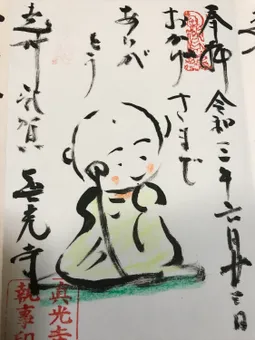 奉拝 令和三年六月廿三日
おかげ
さまで
ありが
とう
真光寺
真光寺
執事印